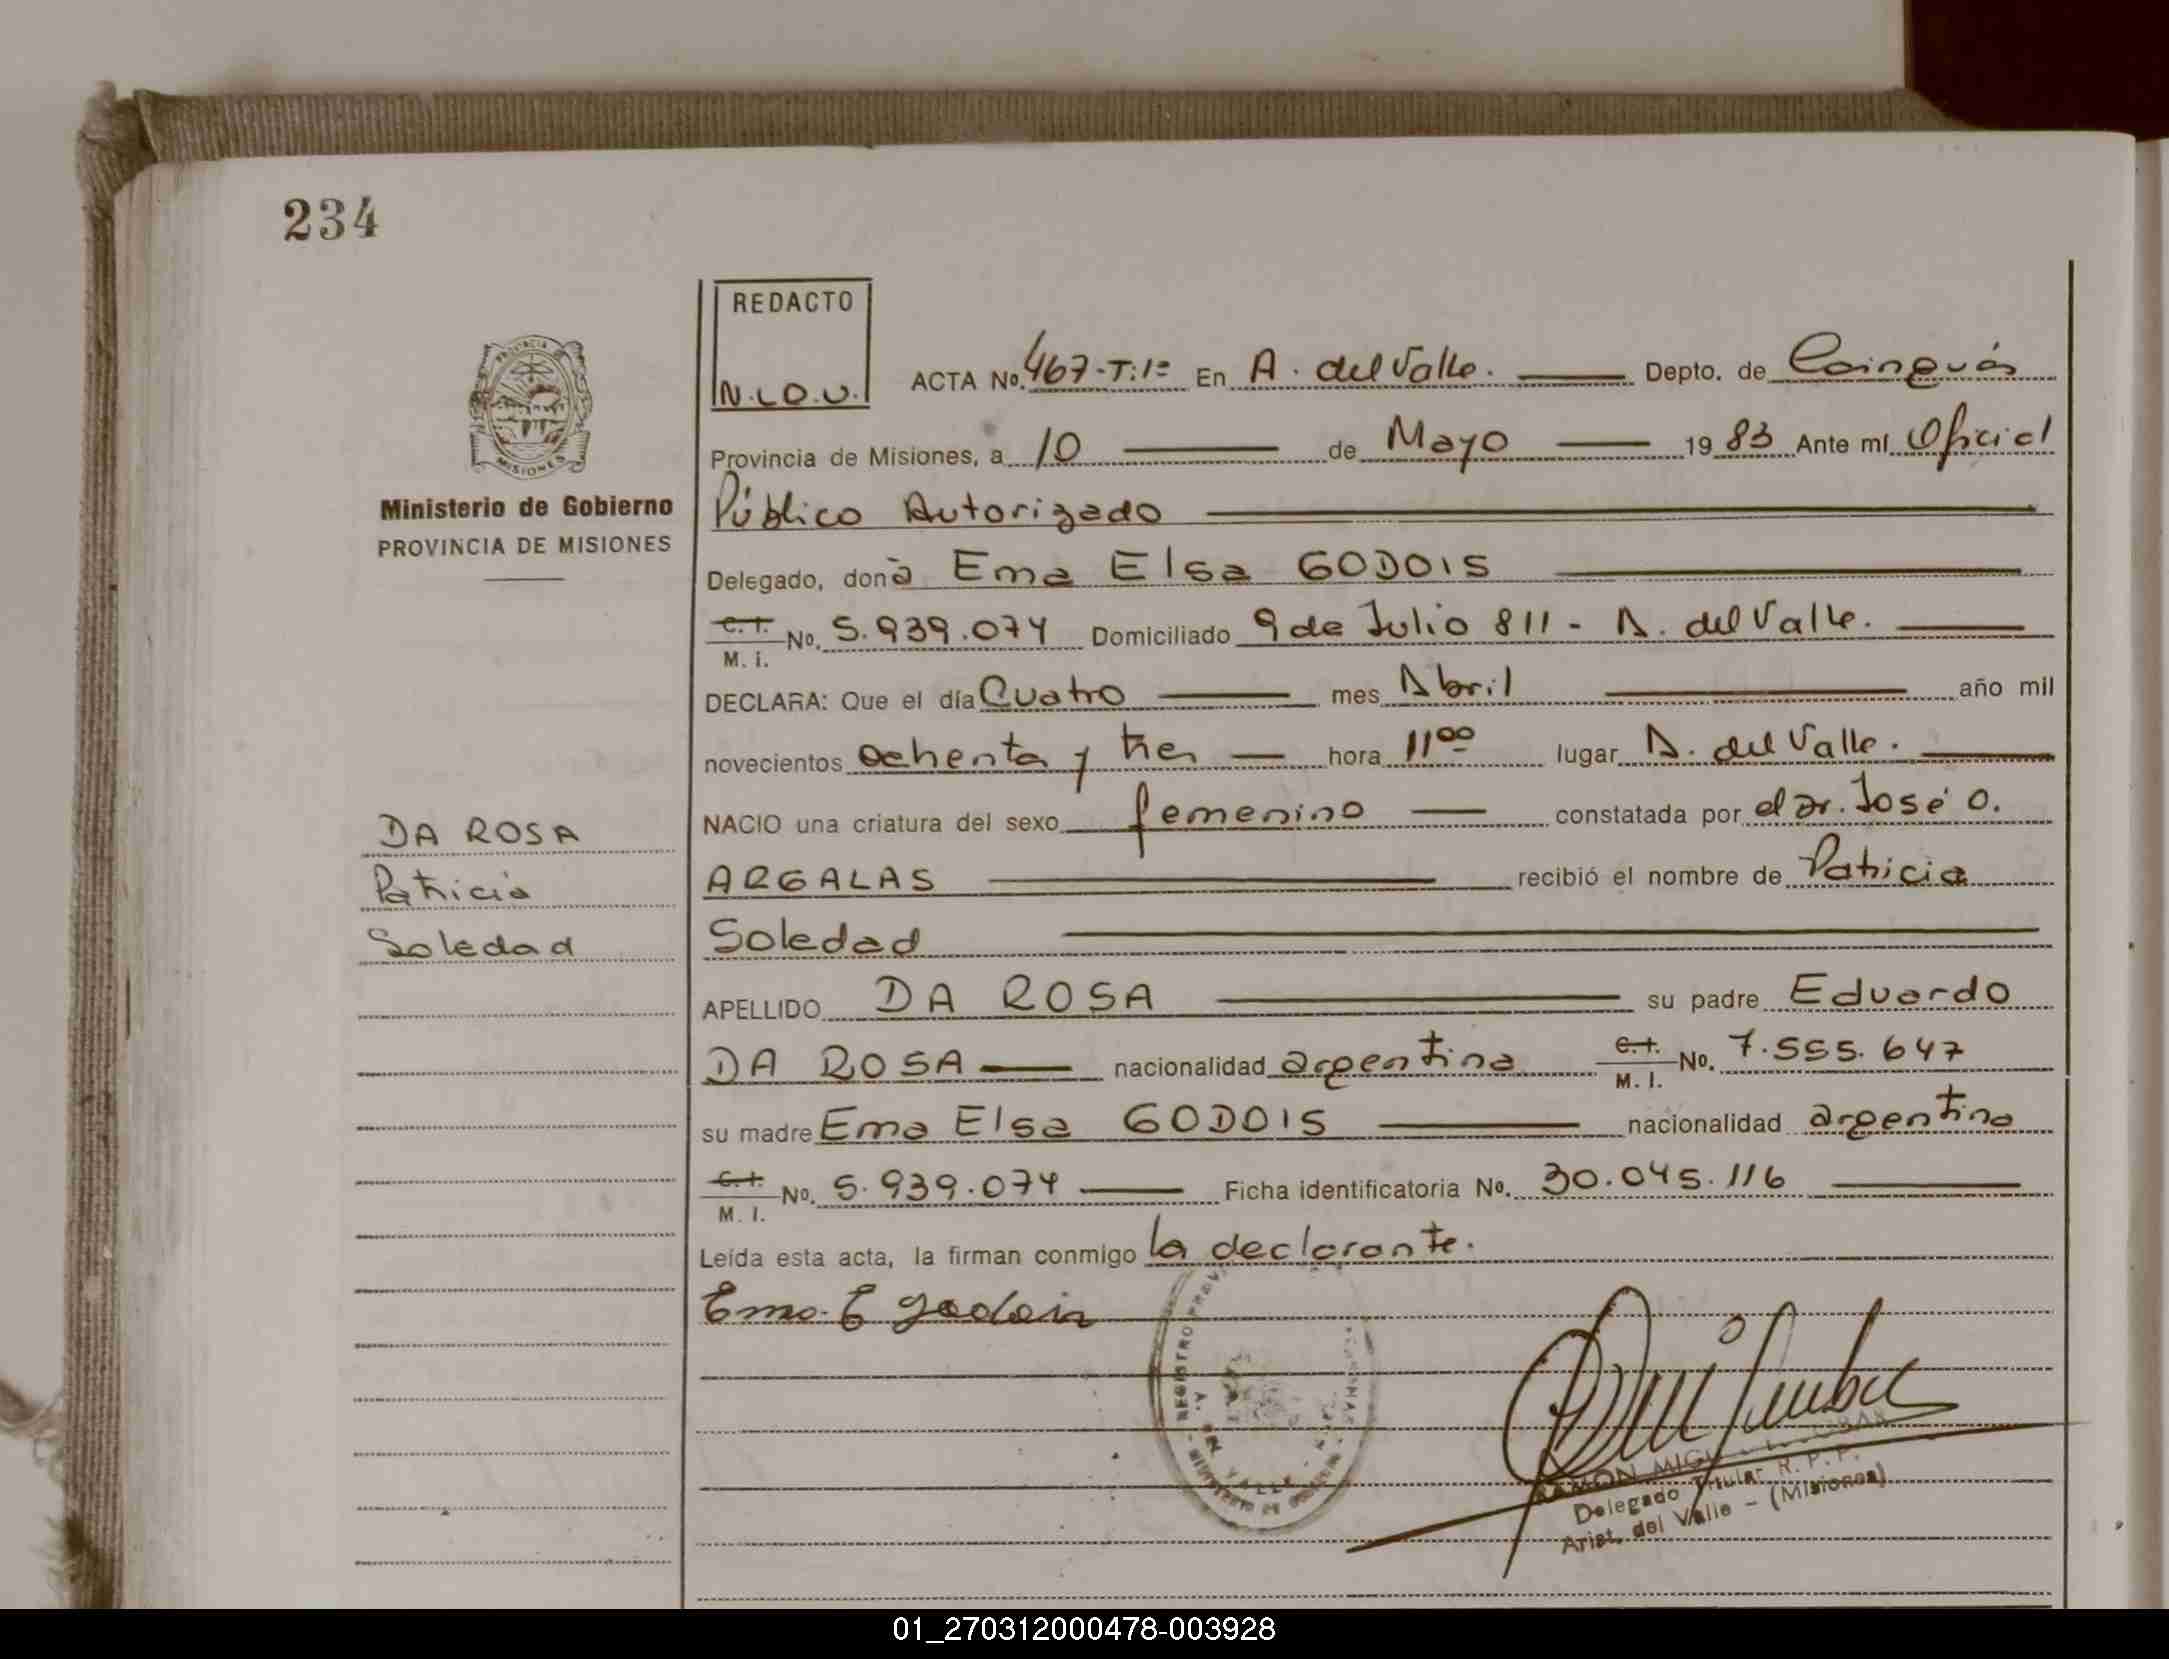 234
REDACTO
N.L.O.U.
PROVINCIA DE
MISIONES
Ministerio de Gobierno
PROVINCIA DE MISIONES
ACTA No. 467-T:1º En A. del Valle. Depto. de Cainguás
Provincia de Misiones, a 10 de Mayo 1983 Ante mí Oficial
Público Autorizado
Delegado, donã Ema Elsa GODOIS
C.I. M.I. No. 5.939.074 Domiciliado 9 de Julio 811 - A. del Valle.
DECLARA: Que el día Cuatro mes Abril año mil
novecientos ochenta y tres hora 11 00 lugar A. del Valle.
NACIO una criatura del sexo femenino constatada por el Dr. José O.
ARGALAS recibió el nombre de Patricia
Soledad
DA ROSA
Patricia
Soledad
APELLIDO DA ROSA su padre Eduardo
DA ROSA nacionalidad argentina C.I. M.I. No. 7.555.647
su madre Ema Elsa GODOIS nacionalidad argentina
C.I. M.I. No. 5.939.074 Ficha identificatoria No. 30.045.116
Leída esta acta, la firman conmigo la declarante.
Ema E Godois
REGISTRO PROV
A. DEL VALLE
MINISTERIO DE
RAMON
Delegado Titular R. P. P.
Arist. del Valle - (Misiones)
01_270312000478-003928